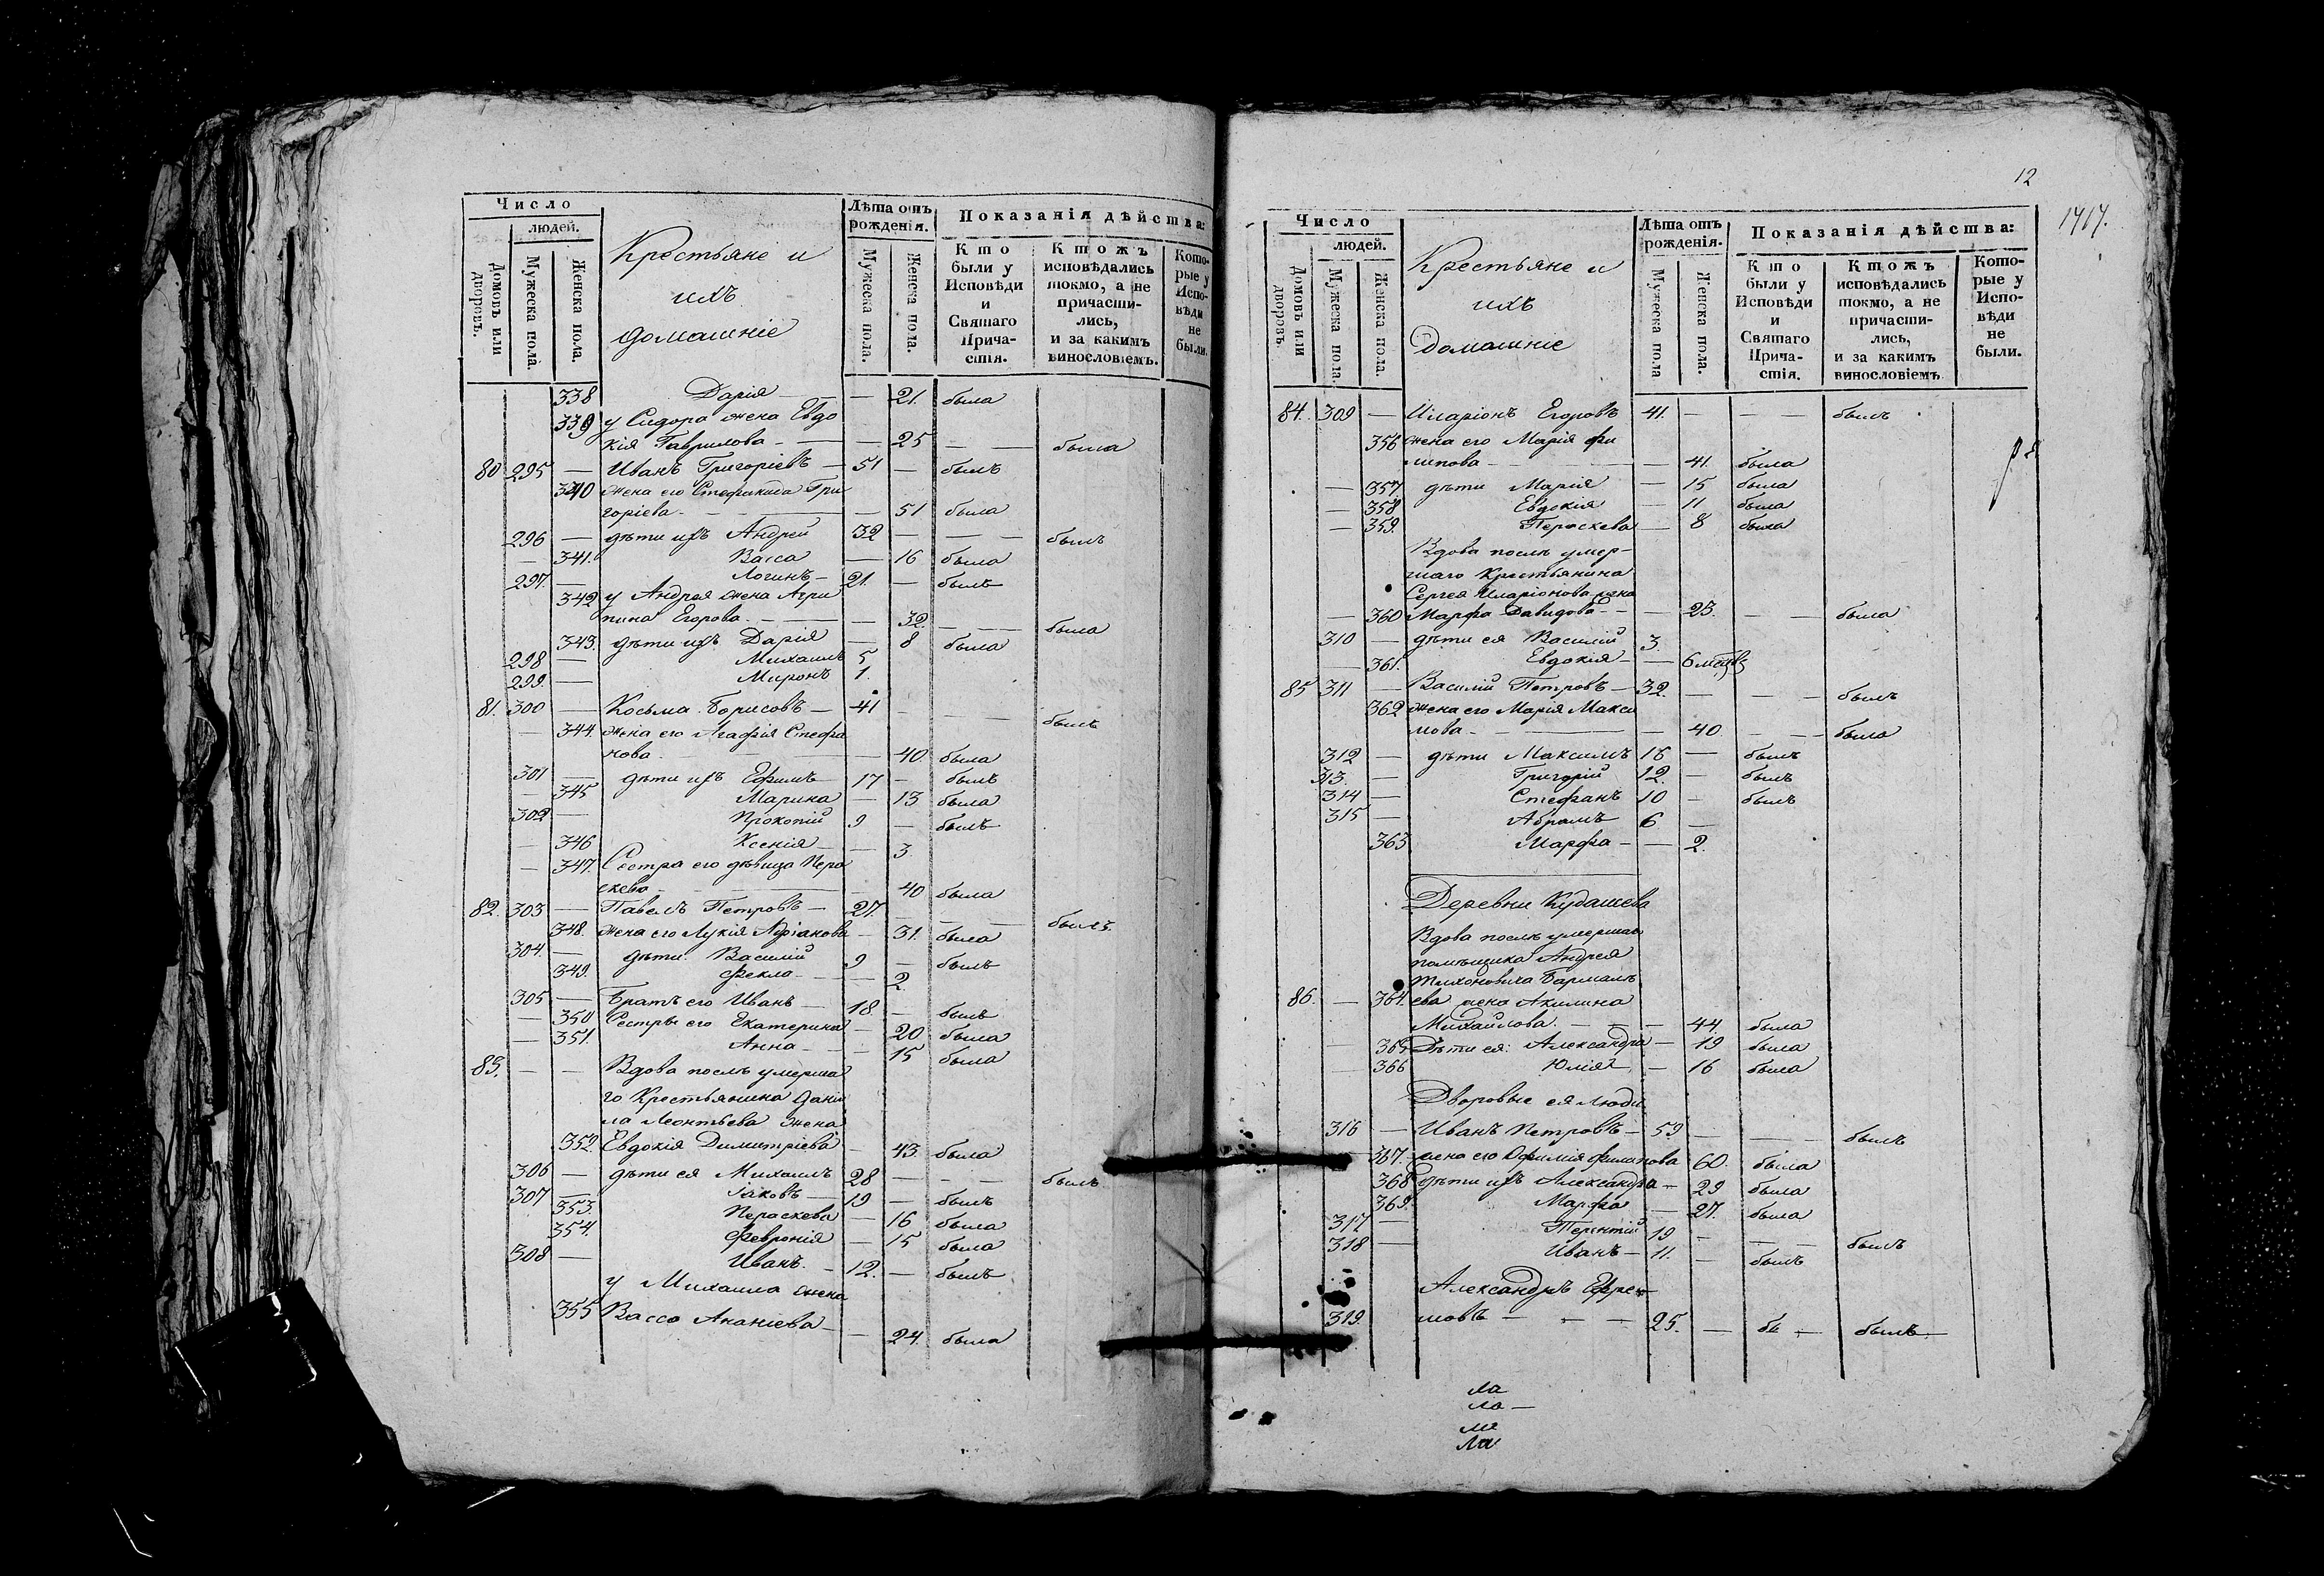 Число
людей.
Домовъ или дворовъ.
Мужеска пола.
Женска пола.
Крестьяне и
ихъ
домашніе
Лѣта отъ
рожденія.
Мужеска пола.
Женска пола.
Показанія дѣйства:
Кто
были у
Исповѣди
и
Святаго
Прича-
стія.
Ктожъ
исповѣдались
токмо, а не
причасти-
лись,
и за какимъ
винословіемъ.
Кото-
рые у
Испо-
вѣди
не
были.
338 Дарія — — 21. была
339 у Сидора жена Евдо
кія Гаврилова — — — 25 — — была
80 295 — Иванъ Григоріевъ — 51 — былъ
340 жена его Стефанида Гри
горіева — — — 51 была
296 — дѣти ихъ Андрей 32 — — — былъ
— 341. Васса — 16 была
297. — Логинъ — 21. — былъ
342 у Андрея жена Агри
пина Егорова — — — 32. — — была
343. дѣти ихъ Дарія — 8 была
298 — Михаилъ 5
299. — Миронъ 1.
81. 300 — Косьма Борисовъ — 41 — — — былъ
— 344. жена его Агафія Стефа
нова — — — 40. была
301 — дѣти ихъ Ефимъ 17 — былъ
— 345 Марина — 13 была
302 — Прокопій 9 — былъ
— 346 Ксенія — — 3.
— 347. Сестра его дѣвица Пера
скева — — 40 была
82. 303 — Павелъ Петровъ — 27. — — — былъ
348. жена его Лукія Адріанова — 31. была
304. — дѣти Василій 9 — былъ
349. Фекла — — 2.
305 — Братъ его Иванъ — 18. — былъ
— 350 Сестры его Екатерина — 20 была
— 351. Анна — — 15 была
83. — — Вдова послѣ умерша
го Крестьянина Дани
ла Леонтьева жена
352. Евдокія Димитріева — 43. была
306 — дѣти ея Михаилъ 28 — — — былъ
307 — Іаковъ — 19 — былъ
353. Пераскева — 16 была
354. Февронія — 15 была
308 — Иванъ — 12. — былъ
у Михаила жена
355 Васса Ананіева — — 24. была
12
1717.
Число
людей.
Домовъ или дворовъ
Мужеска пола.
Женска пола.
Крестьяне и
ихъ
домашніе
Лѣта отъ
рожденія.
Мужеска пола
Женска пола.
Показанія дѣйства:
Кто
были у
Исповѣди
и
Святаго
Прича-
стія.
Ктожъ
исповѣдались
токмо, а не
причасти-
лись,
и за какимъ
винословіемъ
Кото-
рые у
Испо-
вѣди
не
были.
84. 309 — Иларіонъ Егоровъ 41. — — — былъ
356 жена его Марія Фи
липова — — — 41. была
— 357. дѣти Марія — 15 была
— 358 Евдокія — 11 была
— 359. Пераскева — 8 была
Вдова послѣ умер-
шаго Крестьянина
Сергея Иларіонова жена
— 360 Марфа Давидова — — 23. — — была
310 — дѣти ея Василій 3.
— 361. Евдокія — — 6 мѣсяцъ
85 311 — Василій Петровъ — 32. — — — былъ
362 жена его Марія Макси
мова — — — 40. — — была
312 — дѣти Максимъ 16 — былъ
313. — Григорій 12. — былъ
314 — Стефанъ 10 — былъ
315 — Абрамъ 6 —
363 Марфа — — 2.
Деревни Кудашева
Вдова послѣ умершаго
помѣщика Андрея
Тихоновича
86. — 364. ева жена Акилина
Михайлова — — — 44. была
— 365 Дѣти ея: Александра — 19 была
— 366 Юлія — 16 была
Дворовые ея люди
316 — Иванъ Петровъ — 59 — — — былъ
367. жена его Офимія Филипова 60. была
368 дѣти ихъ Александра — 29 была
369. Марфа — 27. была
317 — Терентій 19 — — — былъ
318 — Иванъ — 11. — былъ
Александръ Ефре-
319. мовъ — — — 25. — бы — былъ —
ла
ла —
ле